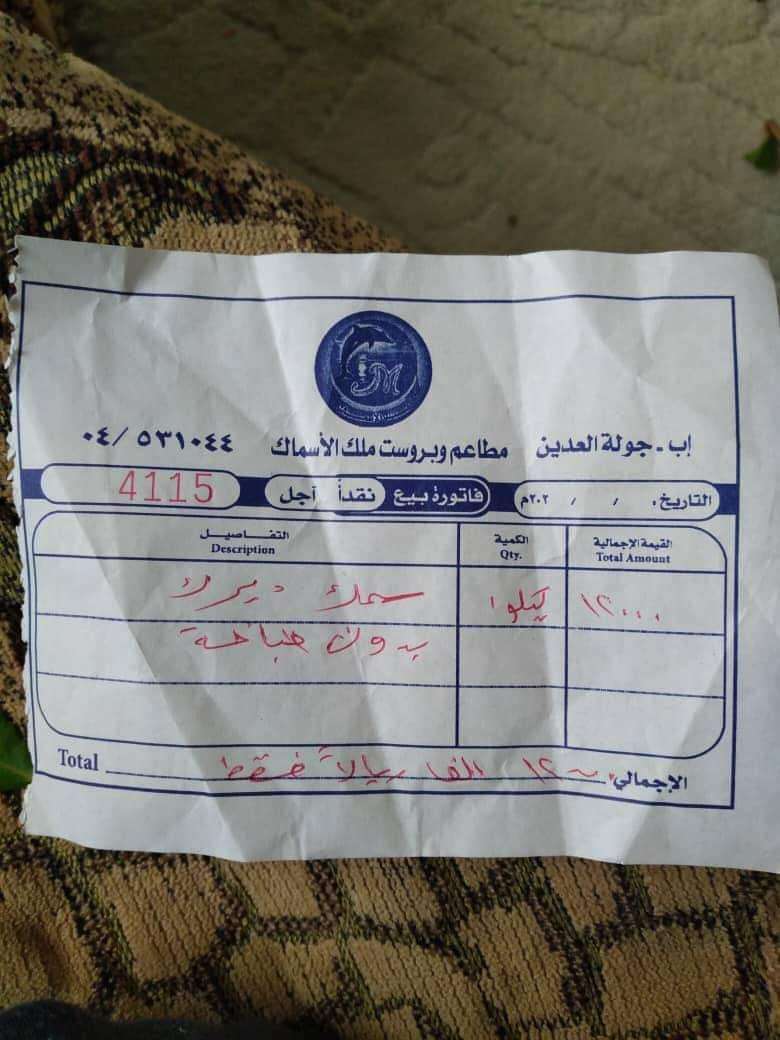 إب - جولة العدين مطاعم وبروست ملك الأسماك ٠٤/٥٣١٠٤٤
التاريخ ، / / ٢٠٢م فاتورة بيع نقداً آجل 4115
القيمة الإجمالية الكمية التفـاصيـل
Total Amount Qty. Description
١٢٠٠٠ كيلو ١ سمك ديرك
بدون طباخة
الإجمالي ١٢٠٠٠ الف ريالاً فقط Total